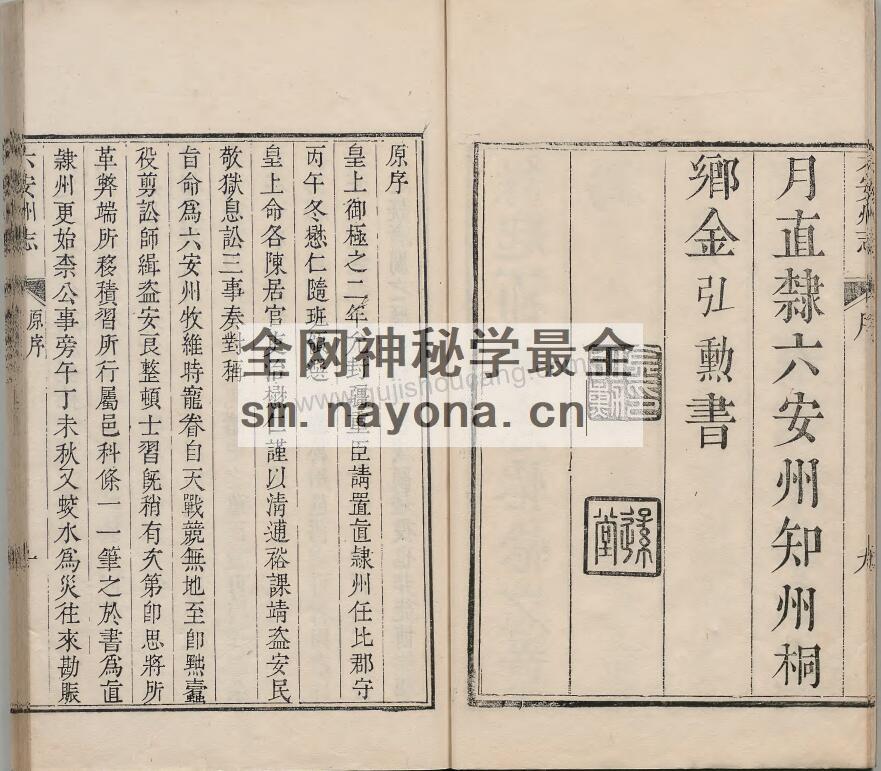 月直隸六安州知州桐
鄉金弘勲書
孫
堂
六安州志
序
九
原序
皇上御極之二年分封疆重臣請置直隸州任比郡守
丙午冬懋仁隨班
皇上命各陳居官
懋仁謹以清逋裕課靖盗安民
敬獄息訟三事奏對稱
旨命爲六安州牧維時龍眷自天戰兢無地至卽㸃蠹
役剪訟師緝盗安良整頓士習旣稍有次第卽思將所
革弊端所移積習所行屬邑科條一一筆之於書爲直
隸州更始柰公事旁午丁未秋又蛟水爲災往來勘賑
六安州志
原序
一
全网神秘学最全
sm.nayona.cn
www.gujishoucang.com